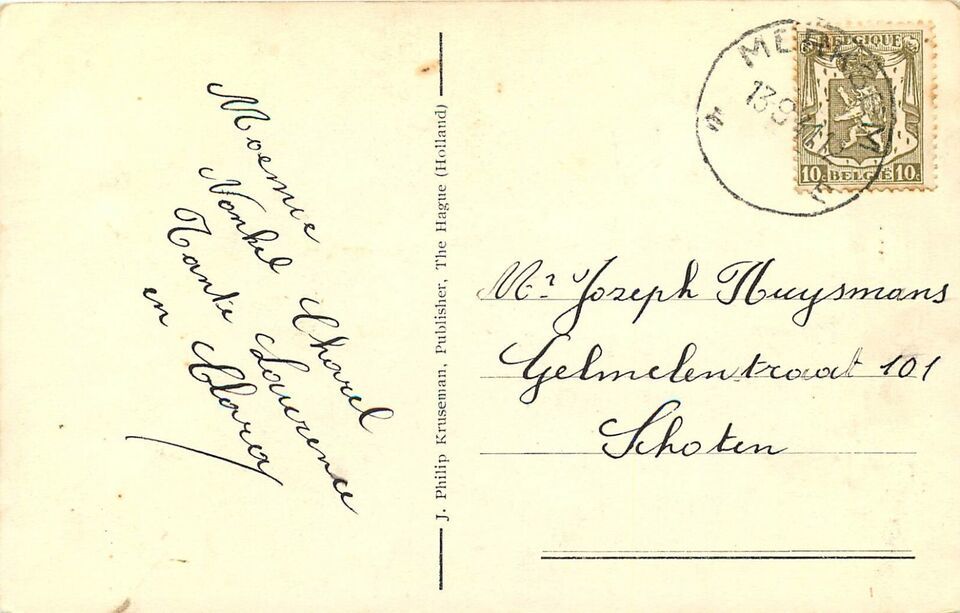 Moemie
Nonkel Charel
Tante Laurence
en Clara
J. Philip Kruseman, Publisher, The Hague (Holland)
MERKSEM
BELGIQUE
10c BELGIË 10c
Mr Joseph Huysmans
Gelmelentraat 101
Schoten